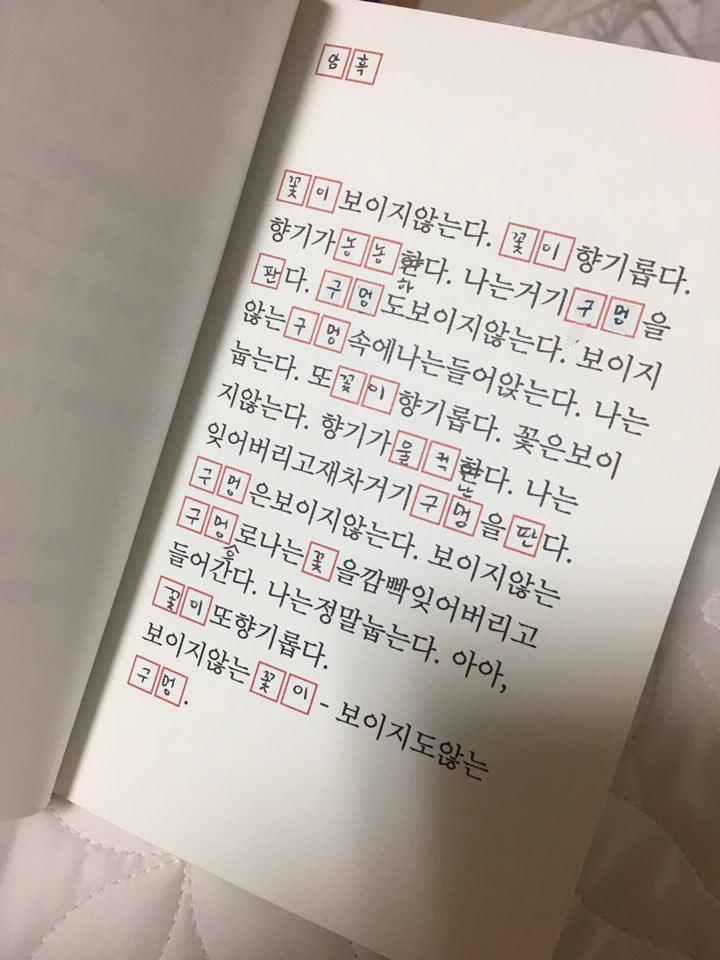 암흑
꽃이보이지않는다. 꽃이 향기롭다.
향기가농농한다. 나는거기구멍을
하
판다. 구멍도보이지않는다. 보이지
않는구멍속에나는들어앉는다. 나는
눕는다. 또꽃이향기롭다. 꽃은보이
지않는다. 향기가물컥한다. 나는
잊어버리고재차거기구멍을판다.
구멍은보이지않는다. 보이지않는
구멍로나는꽃을깜빡잊어버리고
들어간다. 나는정말눕는다. 아아,
꽃이또향기롭다.
보이지않는꽃이-보이지도않는
구멍.